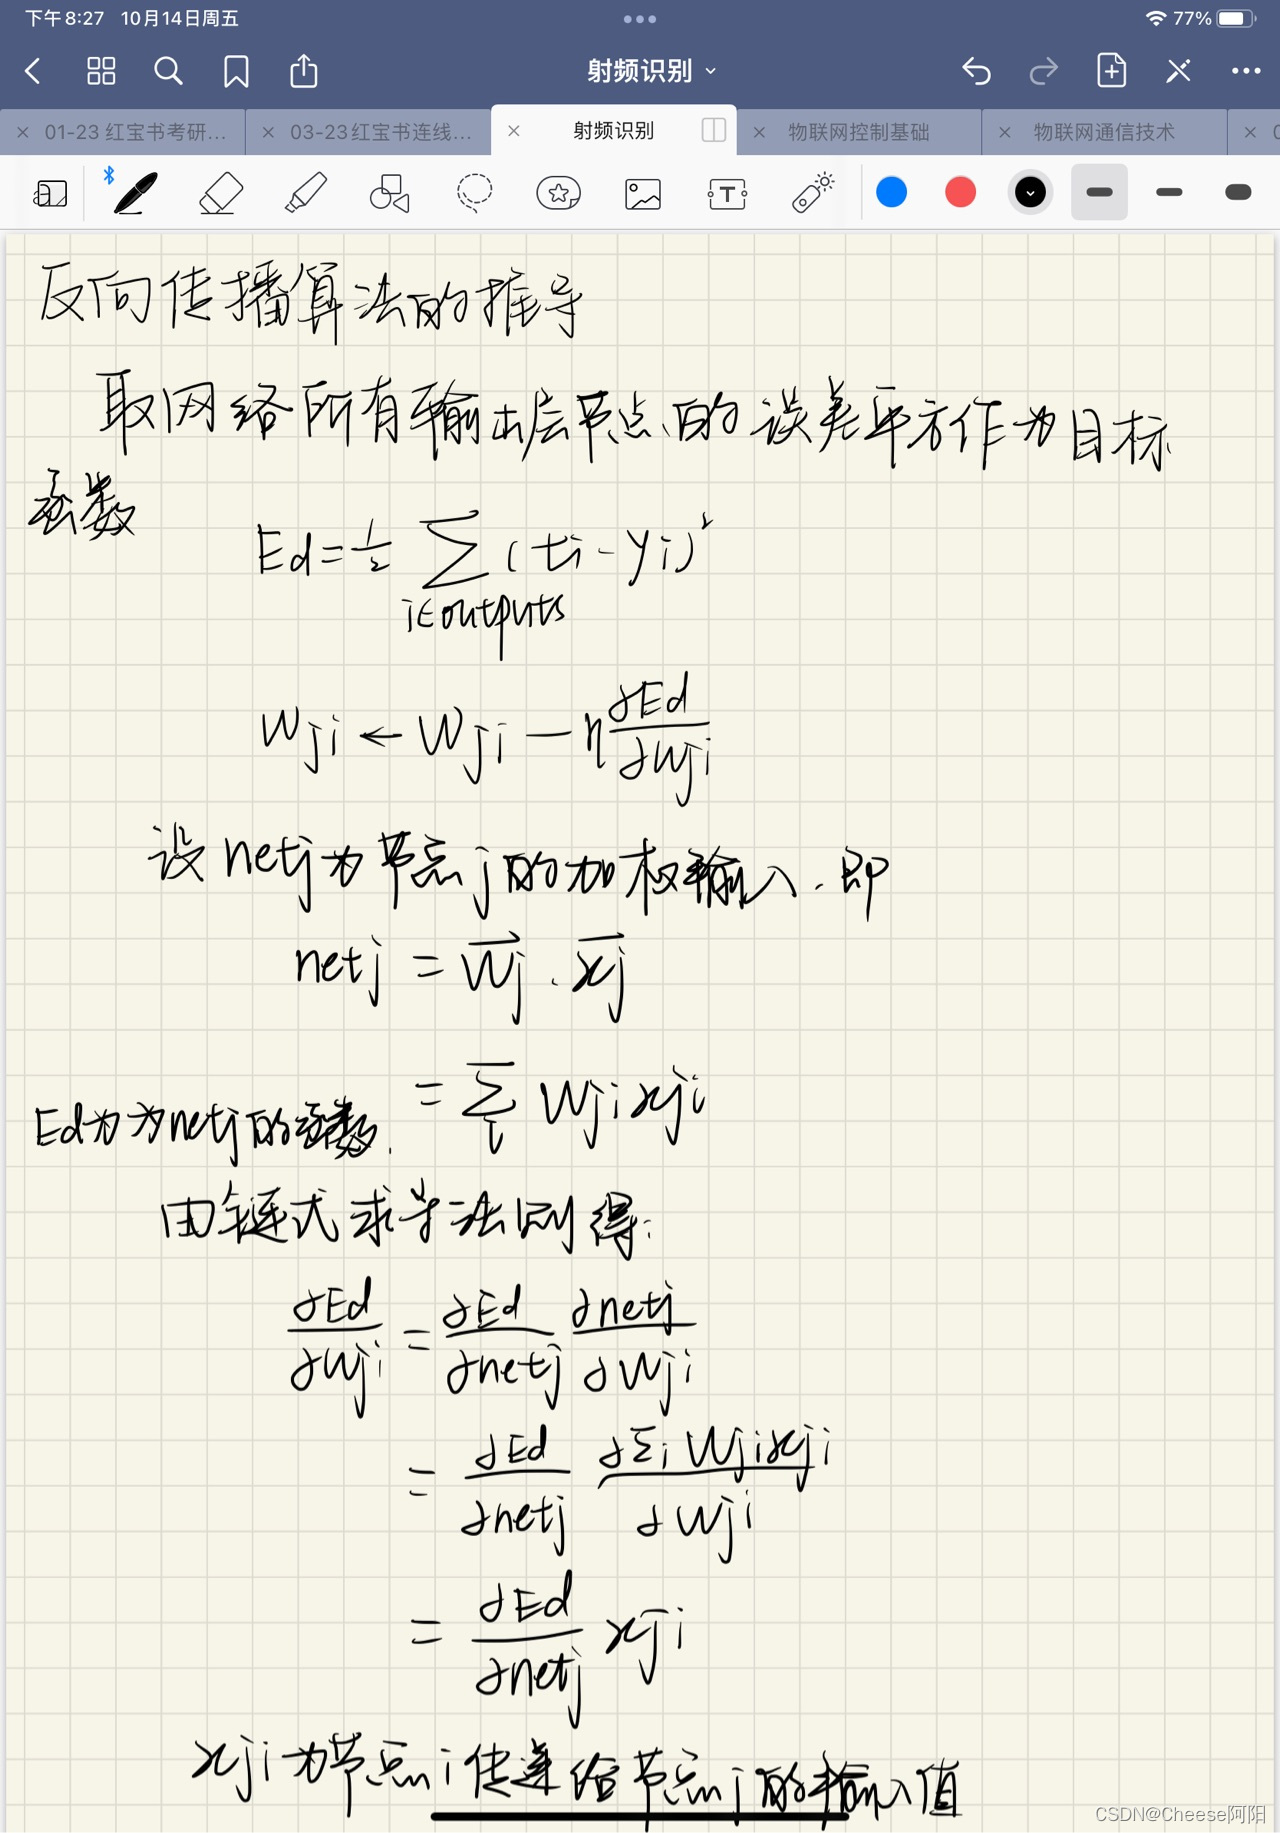 下午8:27 10月14日周五
77%
射频识别
01-23 红宝书考研... 03-23红宝书连线... 射频识别 物联网控制基础 物联网通信技术
反向传播算法的推导
取网络所有输出层节点的误差平方作为目标
函数
Ed=½ Σ (ti-yi)²
i∈outputs
Wji ← Wji - η ∂Ed/∂Wji
设netj为节点j的加权输入.即
netj = W⃗j · x⃗j
= Σi Wjixji
Ed为为netj的函数.
由链式求导法则得:
∂Ed/∂Wji = ∂Ed/∂netj ∂netj/∂Wji
= ∂Ed/∂netj ∂Σi Wjixji/∂Wji
= ∂Ed/∂netj xji
xji为节点i传递给节点j的输入值
CSDN@Cheese阿阳